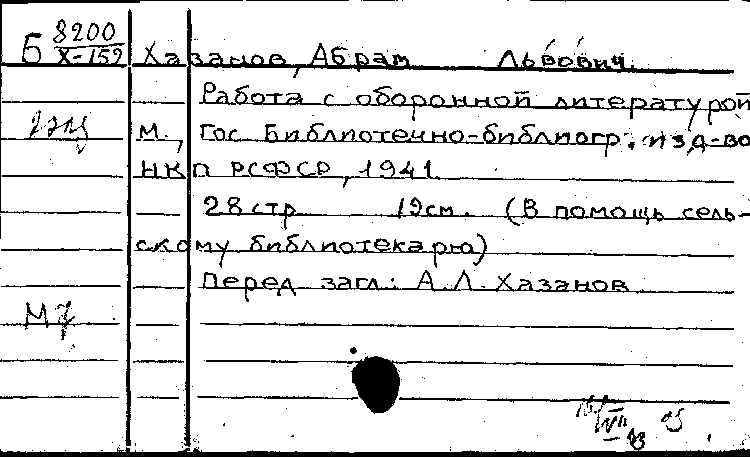 Б 8200
X-159
Хазанов, Абрам Львович.
Работа с оборонной литературой
2 экз
М., Гос. Библиотечно-библиогр. изд-во
НКП РСФСР, 1941.
28 стр 19 см. (В помощь сель-
скому библиотекарю)
Перед загл.: А.Л. Хазанов